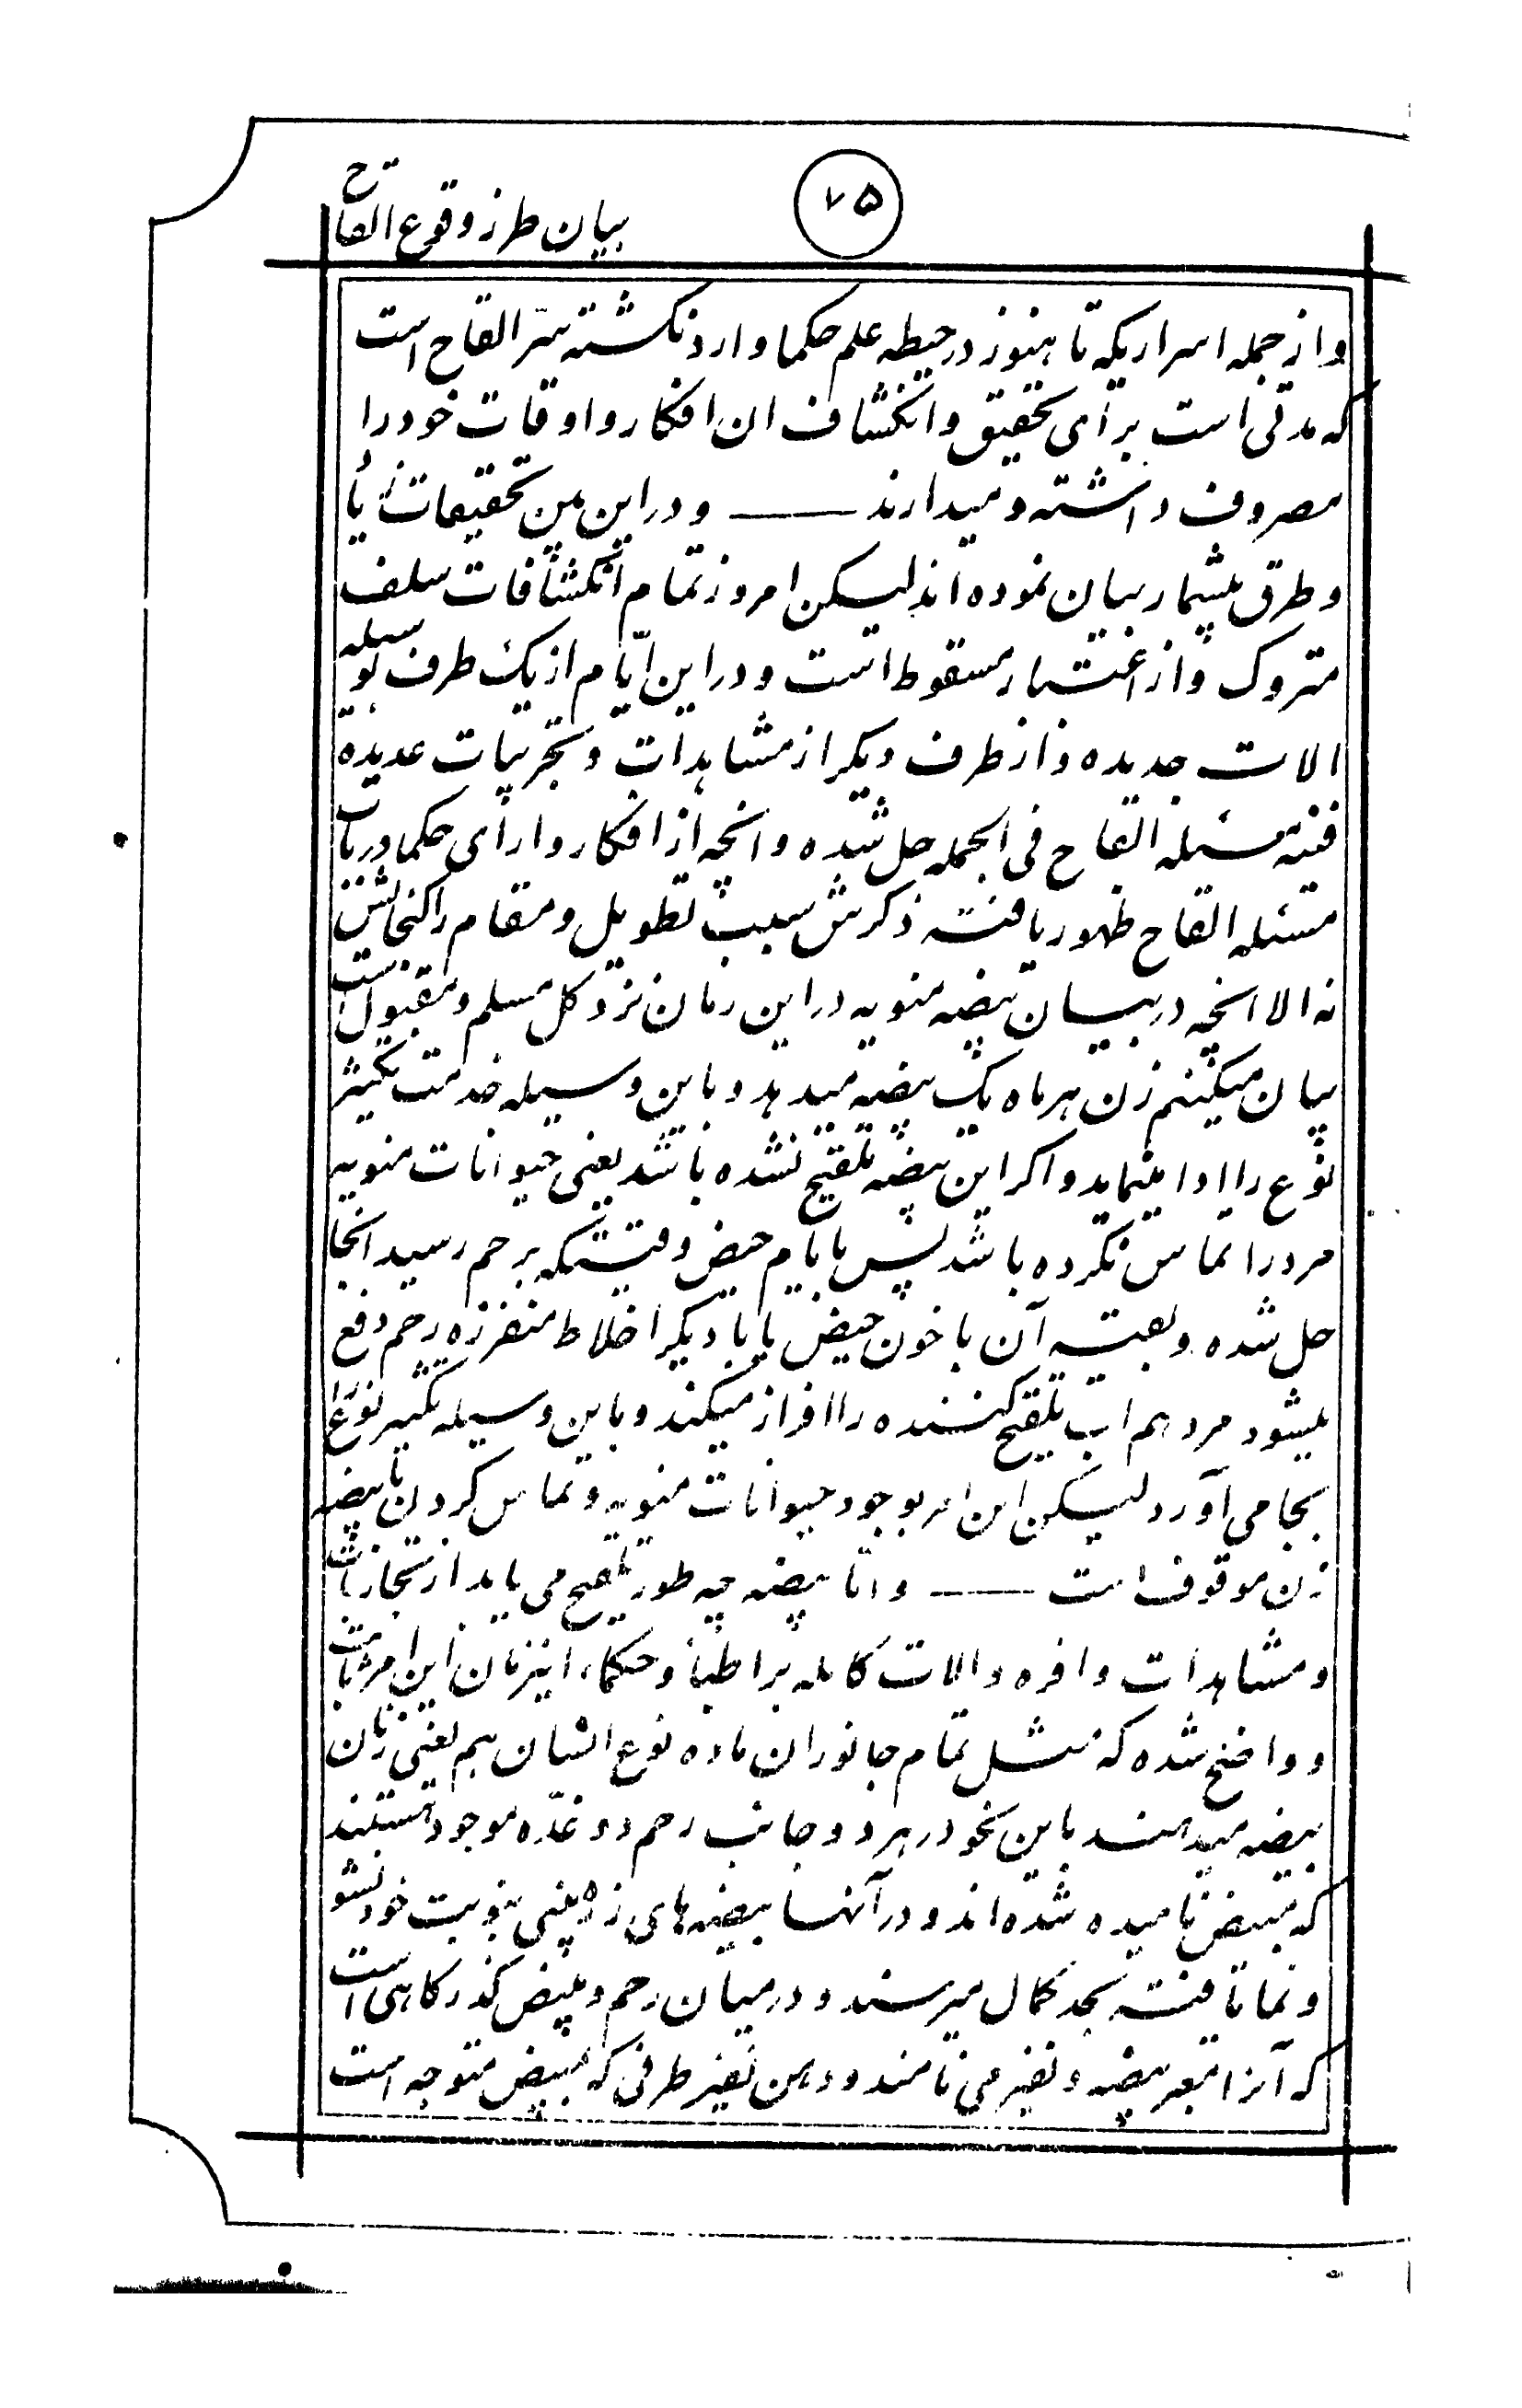 ۷۵
بیان طرز وقوع القاح
و از جمله اسراریکه تا هنوز در حیطه علم حکما وارد نکشته سرّ القاح است
که مدتی است برای تحقیق و انکشاف ان افکار و اوقات خود را
مصروف داشته و میدارند —— و در این تحقیقات
و طرق بیشمار بیان نموده اند لیسکن امروز تمام انکشافات سلف
متروک و از اعتبار مسقوط است و در این ایّام از یک طرف بوسیله
الات جدیده و از طرف دیکر از مشاهدات و تجربیات عدیده
فنیه مسئله القاح فی الجمله حل شده و انچه از افکار و ارای حکما در باب
مسئله القاح ظهور یافته ذکرش سبب تطویل و مقام را کنجایش
نه الا انچه در بیان بیضه منویه در این زمان نزد کل مسلم و مقبول است
بیان میکنیم زن هر ماه یک بیضه میدهد و باین وسیله خدمت تکثیر
نوع را ادا مینماید و اکر این بیضه تلقیح نشده باشد یعنی حیوانات منویه
مرد را تماس نکرده باشد پس بایام حیض وقتیکه برحم رسید انجا
حل شده و بقیه آن با خون حیض یا با دیکر اخلاط منفرزه رحم دفع
میشود مرد هم اب تلقیح کننده را افراز میکند و باین وسیله تکثیر نوع را
بجا می آورد لیسکن این امر بوجود حیوانات منویه و تماس کردن با بیضه
زن موقوف است —— و امّا بیضه چه طور تلقیح می یابد از تجاربات
و مشاهدات وافره و الات کامله بر اطبا و حکماء اینزمان این امر ثابت
و واضح شده که مثل تمام جانوران ماده نوع انسان هم یعنی زنان
بیضه میدهند باین نحو در هر دو جانب رحم دو غدّه موجود هستند
که مبیض نامیده شده اند و در آنها بیضه های زن بنوبت خود نشو
و نما یافته بحد کمال میرسند و در میان رحم و مبیض کذرکاهی است
که آنرا معبر بیضه و نفیر می نامند و دهن نفیر طرفی که بمبیض متوجه است